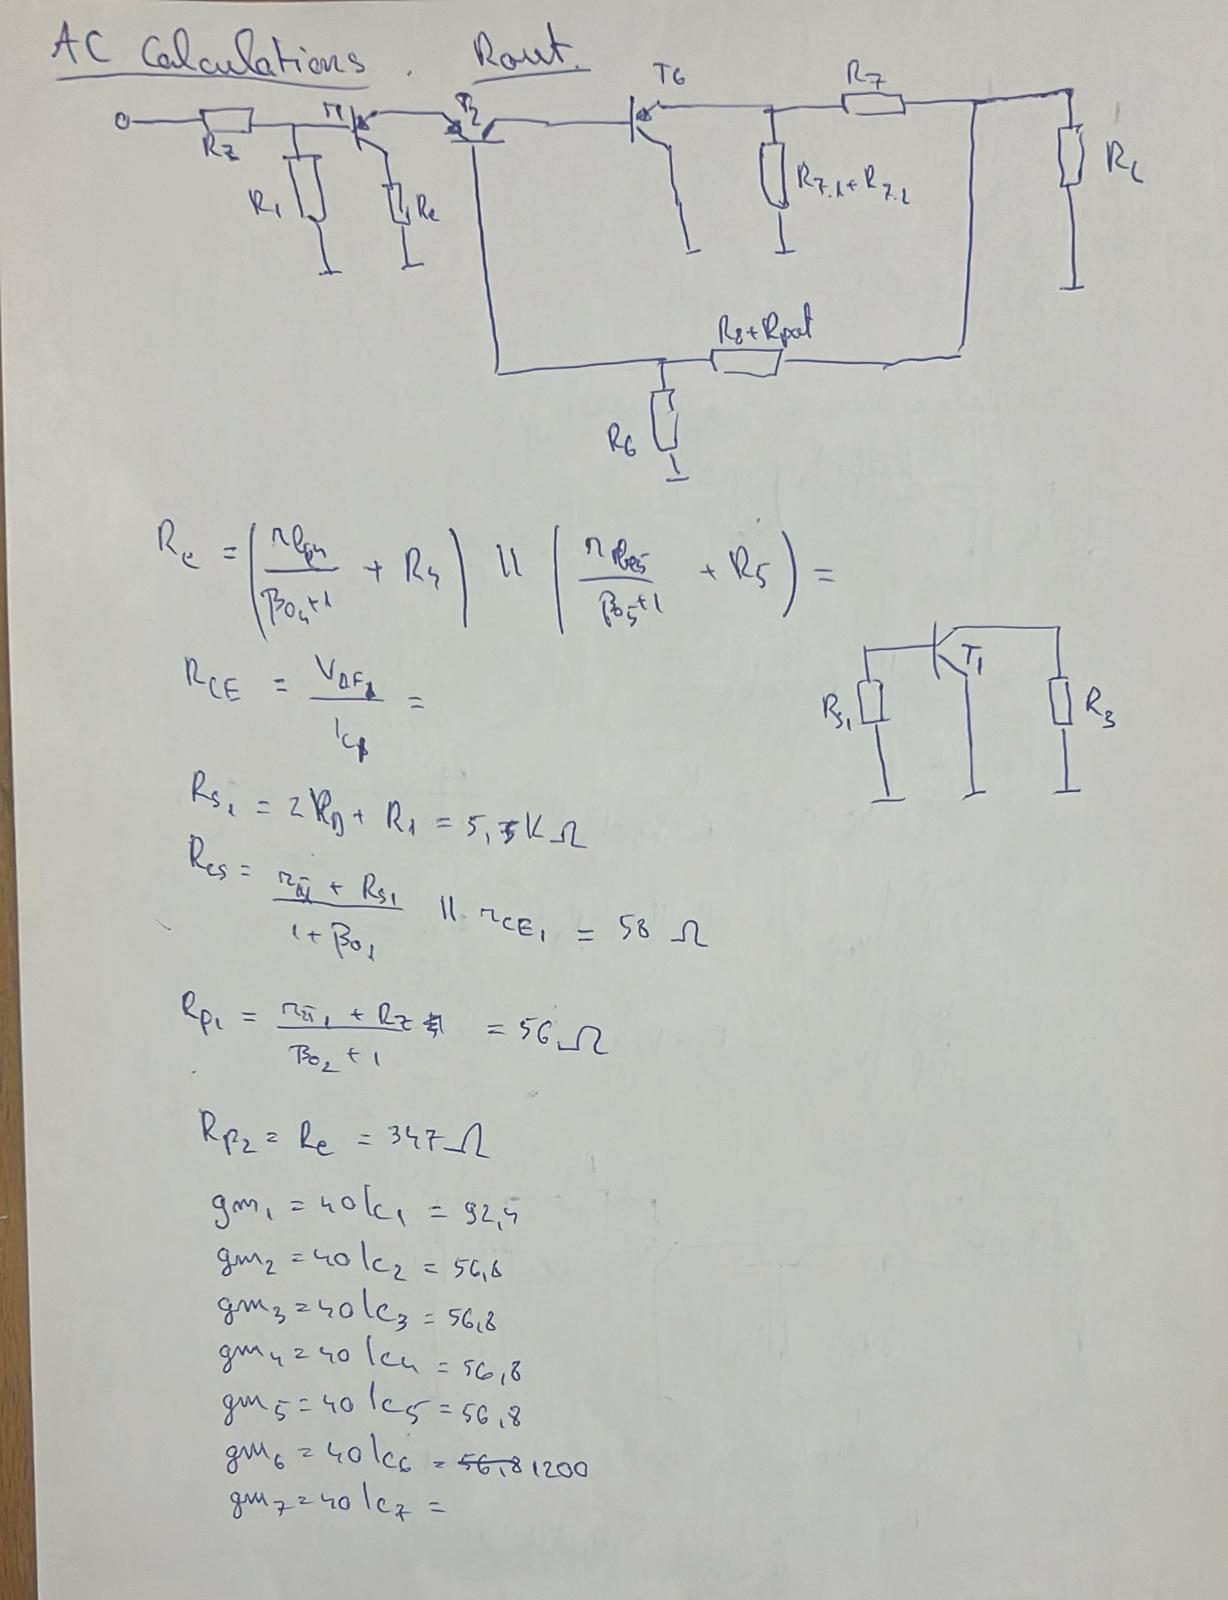 AC Calculations. Rout.
T1 T2 T6 R7
RZ R1 Re R7.1+R7.2 RL
R8+Rpot
R6
Re = (rbe4 / β04+1 + R4) || (rbe5 / β05+1 + R5) =
RCE = VAF1 / IC1 =
RS1 T1 R3
RS1 = 2RD + R1 = 5,5KΩ
Res = rπ1 + RS1 / 1+β01 || rCE1 = 58 Ω
Rp1 = rπ1 + RZ / β02 + 1 = 56 Ω
Rp2 = Re = 347Ω
gm1 = 40 Ic1 = 92,4
gm2 = 40 Ic2 = 56,8
gm3 = 40 Ic3 = 56,8
gm4 = 40 Ic4 = 56,8
gm5 = 40 Ic5 = 56,8
gm6 = 40 Ic6 = 56,8 1200
gm7 = 40 Ic7 =